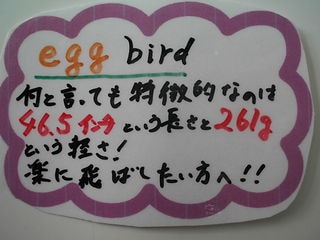 egg bird
何と言っても特徴的なのは
46.5インチという長さと261g
という軽さ!
楽に飛ばしたい方へ!!